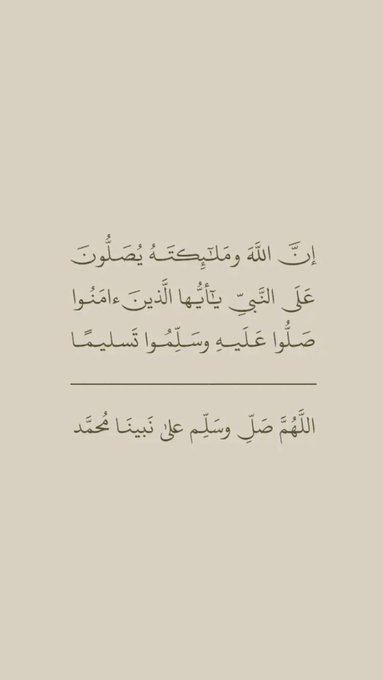 إنَّ اللَّهَ ومَلـٰٓئِكتَـهُ يُصَـلُّونَ
عَلَى النَّبيِّ يـٰٓأيُّـها الَّذينَ ءامَنُـوا
صَـلُّوا عَـلَيـهِ وسَـلِّمُـوا تَسـليـمًـا
اللَّهُمَّ صَلِّ وسَلِّم علىٰ نَبينَـا مُحمَّد